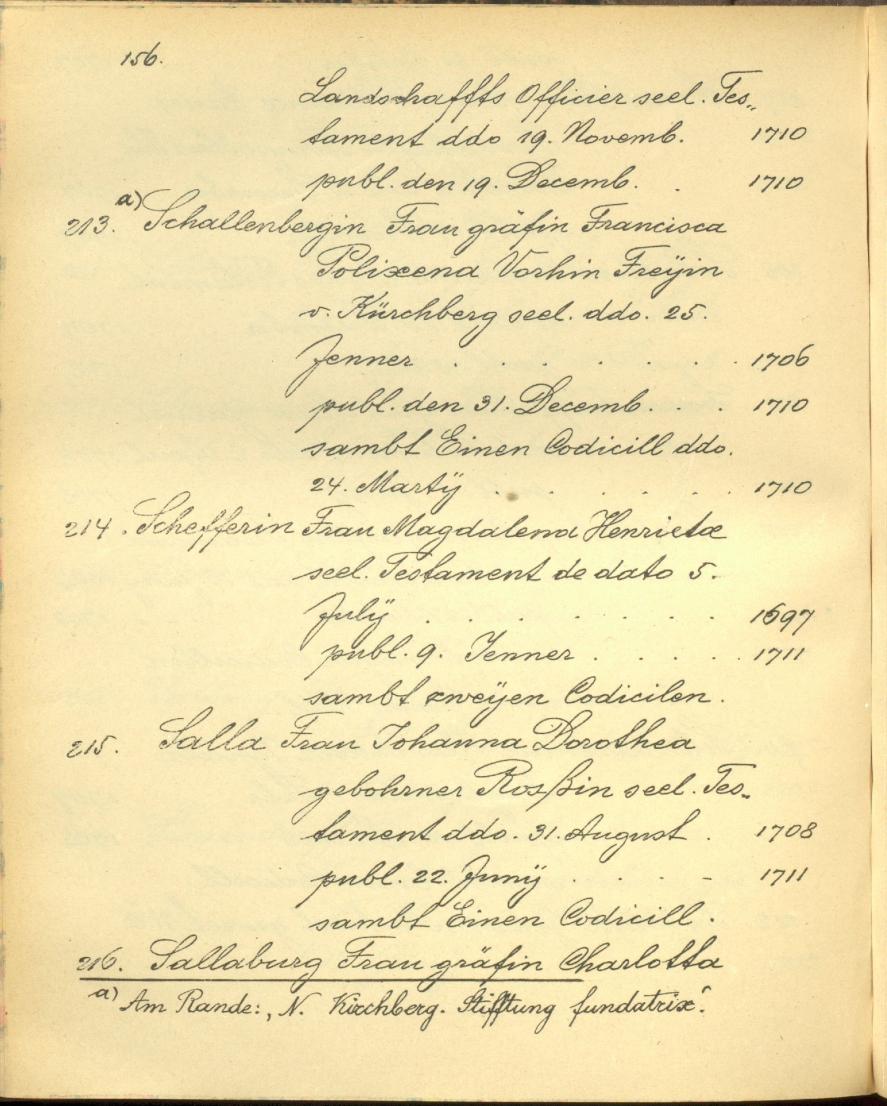 156.
Landschaffts Officier seel. Tes„
tament ddo 19. Novemb. 1710
publ. den 19. Decemb. . 1710
213. a) Schallenbergin Frau gräfin Francisca
Polixena Vorhin Freÿin
v. Kürchberg seel. ddo. 25.
Jenner . . . . . . . 1706
publ. den 31. Decemb. . . 1710
sambt Einen Codicill ddo.
24. Martÿ . . . . . . 1710
214. Schefferin Frau Magdalena Henrietæ
seel. Testament de dato 5.
Julÿ . . . . . . . 1697
publ. 9. Jenner . . . . 1711
sambt zweÿen Codicilen.
215. Salla Frau Johanna Dorothea
gebohrner Rosßin seel. Tes„
tament ddo. 31. August . 1708
publ. 22. Junÿ . . . - 1711
sambt Einen Codicill.
216. Sallaburg Frau gräfin Charlotta
a) Am Rande: „N. Kirchberg. Stifftung fundatrix“.